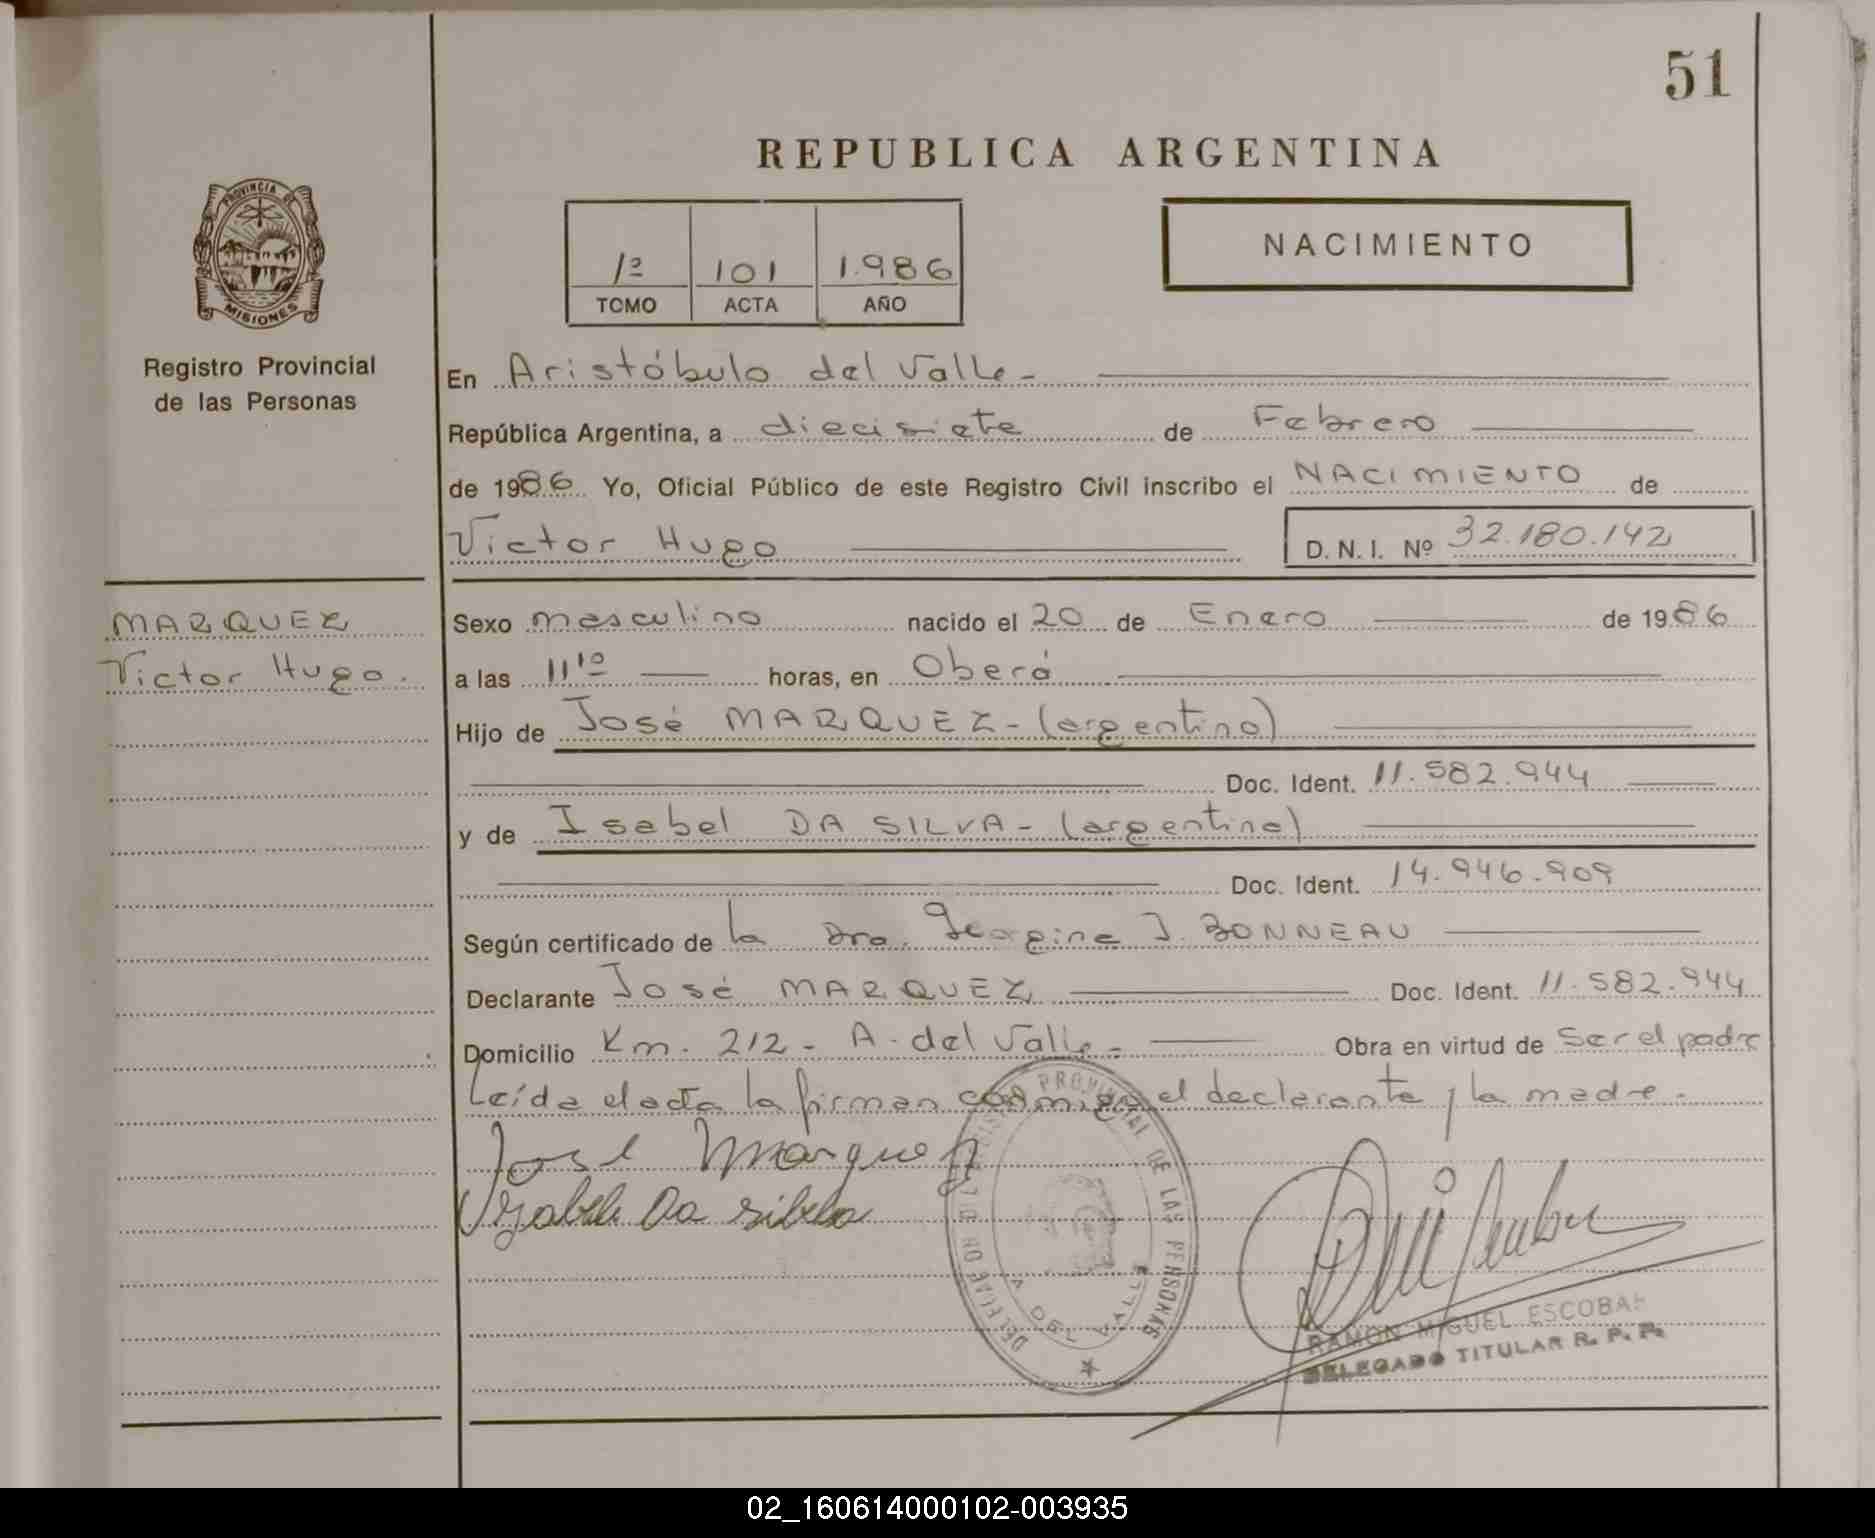 51
REPUBLICA ARGENTINA
PROVINCIA DE
MISIONES
Registro Provincial
de las Personas
1º 101 1.986
TOMO ACTA AÑO
NACIMIENTO
En Aristóbulo del Valle -
República Argentina, a diecisiete de Febrero
de 1986 Yo, Oficial Público de este Registro Civil inscribo el NACIMIENTO de
Victor Hugo D.N.I. Nº 32.180.142
MARQUEZ
Victor Hugo.
Sexo masculino nacido el 20 de Enero de 1986
a las 11¹⁰ horas, en Oberá
Hijo de José MARQUEZ - (argentino)
Doc. Ident. 11.582.944
y de Isabel DA SILVA - (argentina)
Doc. Ident. 14.946.909
Según certificado de la Dra. Georgina J. BONNEAU
Declarante José MARQUEZ Doc. Ident. 11.582.944
Domicilio Km. 212 - A. del Valle - Obra en virtud de ser el padre
Leída el acta la firman conmigo el declarante y la madre.
José Marquez
Da silva
REGISTRO PROVINCIAL DE LAS PERSONAS
A. DEL VALLE
RAMON MIGUEL ESCOBAR
DELEGADO TITULAR R. P. P.
02_160614000102-003935